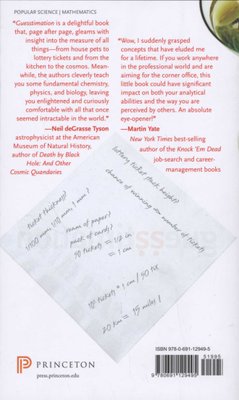 POPULAR SCIENCE | MATHEMATICS
"Guesstimation is a delightful book
that, page after page, gleams with
insight into the measure of all
things—from house pets to
lottery tickets and from the
kitchen to the cosmos. Mean-
while, the authors cleverly teach
you some fundamental chemistry,
physics, and biology, leaving
you enlightened and curiously
comfortable with all that once
seemed intractable in the world."
—Neil deGrasse Tyson
astrophysicist at the American
Museum of Natural History,
author of Death by Black
Hole: And Other
Cosmic Quandaries
"Wow, I suddenly grasped
concepts that have eluded me
for a lifetime. If you work anywhere
in the professional world and are
aiming for the corner office, this
little book could have significant
impact on both your analytical
abilities and the way you are
perceived by others. An absolute
eye-opener!"
—Martin Yate
New York Times best-selling
author of the Knock 'Em Dead
job-search and career-
management books
lottery ticket (stack height)
chance of winning on number of tickets
ticket thickness?
1/100 mm, 1/10 mm, 1 mm?
ream of paper?
pack of cards?
50 tickets = 1/2 in
= 1 cm
* 1 cm / 50 tix
20 km = 15 miles!
PRINCETON
press.princeton.edu
ISBN 978-0-691-12949-5
51995
9 780691 129495